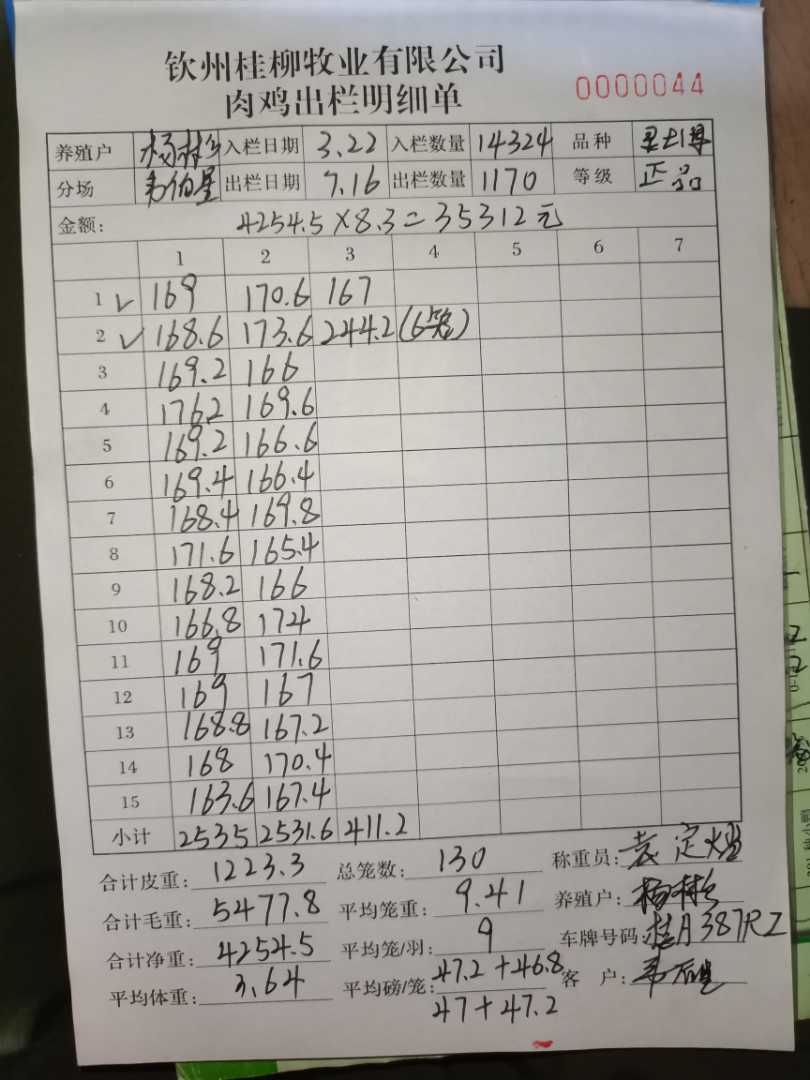 钦州桂柳牧业有限公司
肉鸡出栏明细单
0000044
养殖户 杨彬 入栏日期 3.22 入栏数量 14324 品种
分场 韦伯星 出栏日期 7.16 出栏数量 1170 等级 正品
金额: 4254.5×8.3=35312元
1 2 3 4 5 6 7
1 ✓ 169 170.6 167
2 ✓ 168.6 173.6 244.2 (6笼)
3 169.2 166
4 176.2 169.6
5 169.2 166.6
6 169.4 166.4
7 168.4 169.8
8 171.6 165.4
9 168.2 166
10 166.8 174
11 169 171.6
12 169 167
13 168.8 167.2
14 168 170.4
15 163.6 167.4
小计 2535 2531.6 411.2
合计皮重: 1223.3 总笼数: 130 称重员: 袁定
合计毛重: 5477.8 平均笼重: 9.41 养殖户: 杨彬
合计净重: 4254.5 平均笼/羽: 9 车牌号码: 桂A387RZ
平均体重: 3.64 平均磅/笼: 47.2+46.8 客 户: 韦
47+47.2